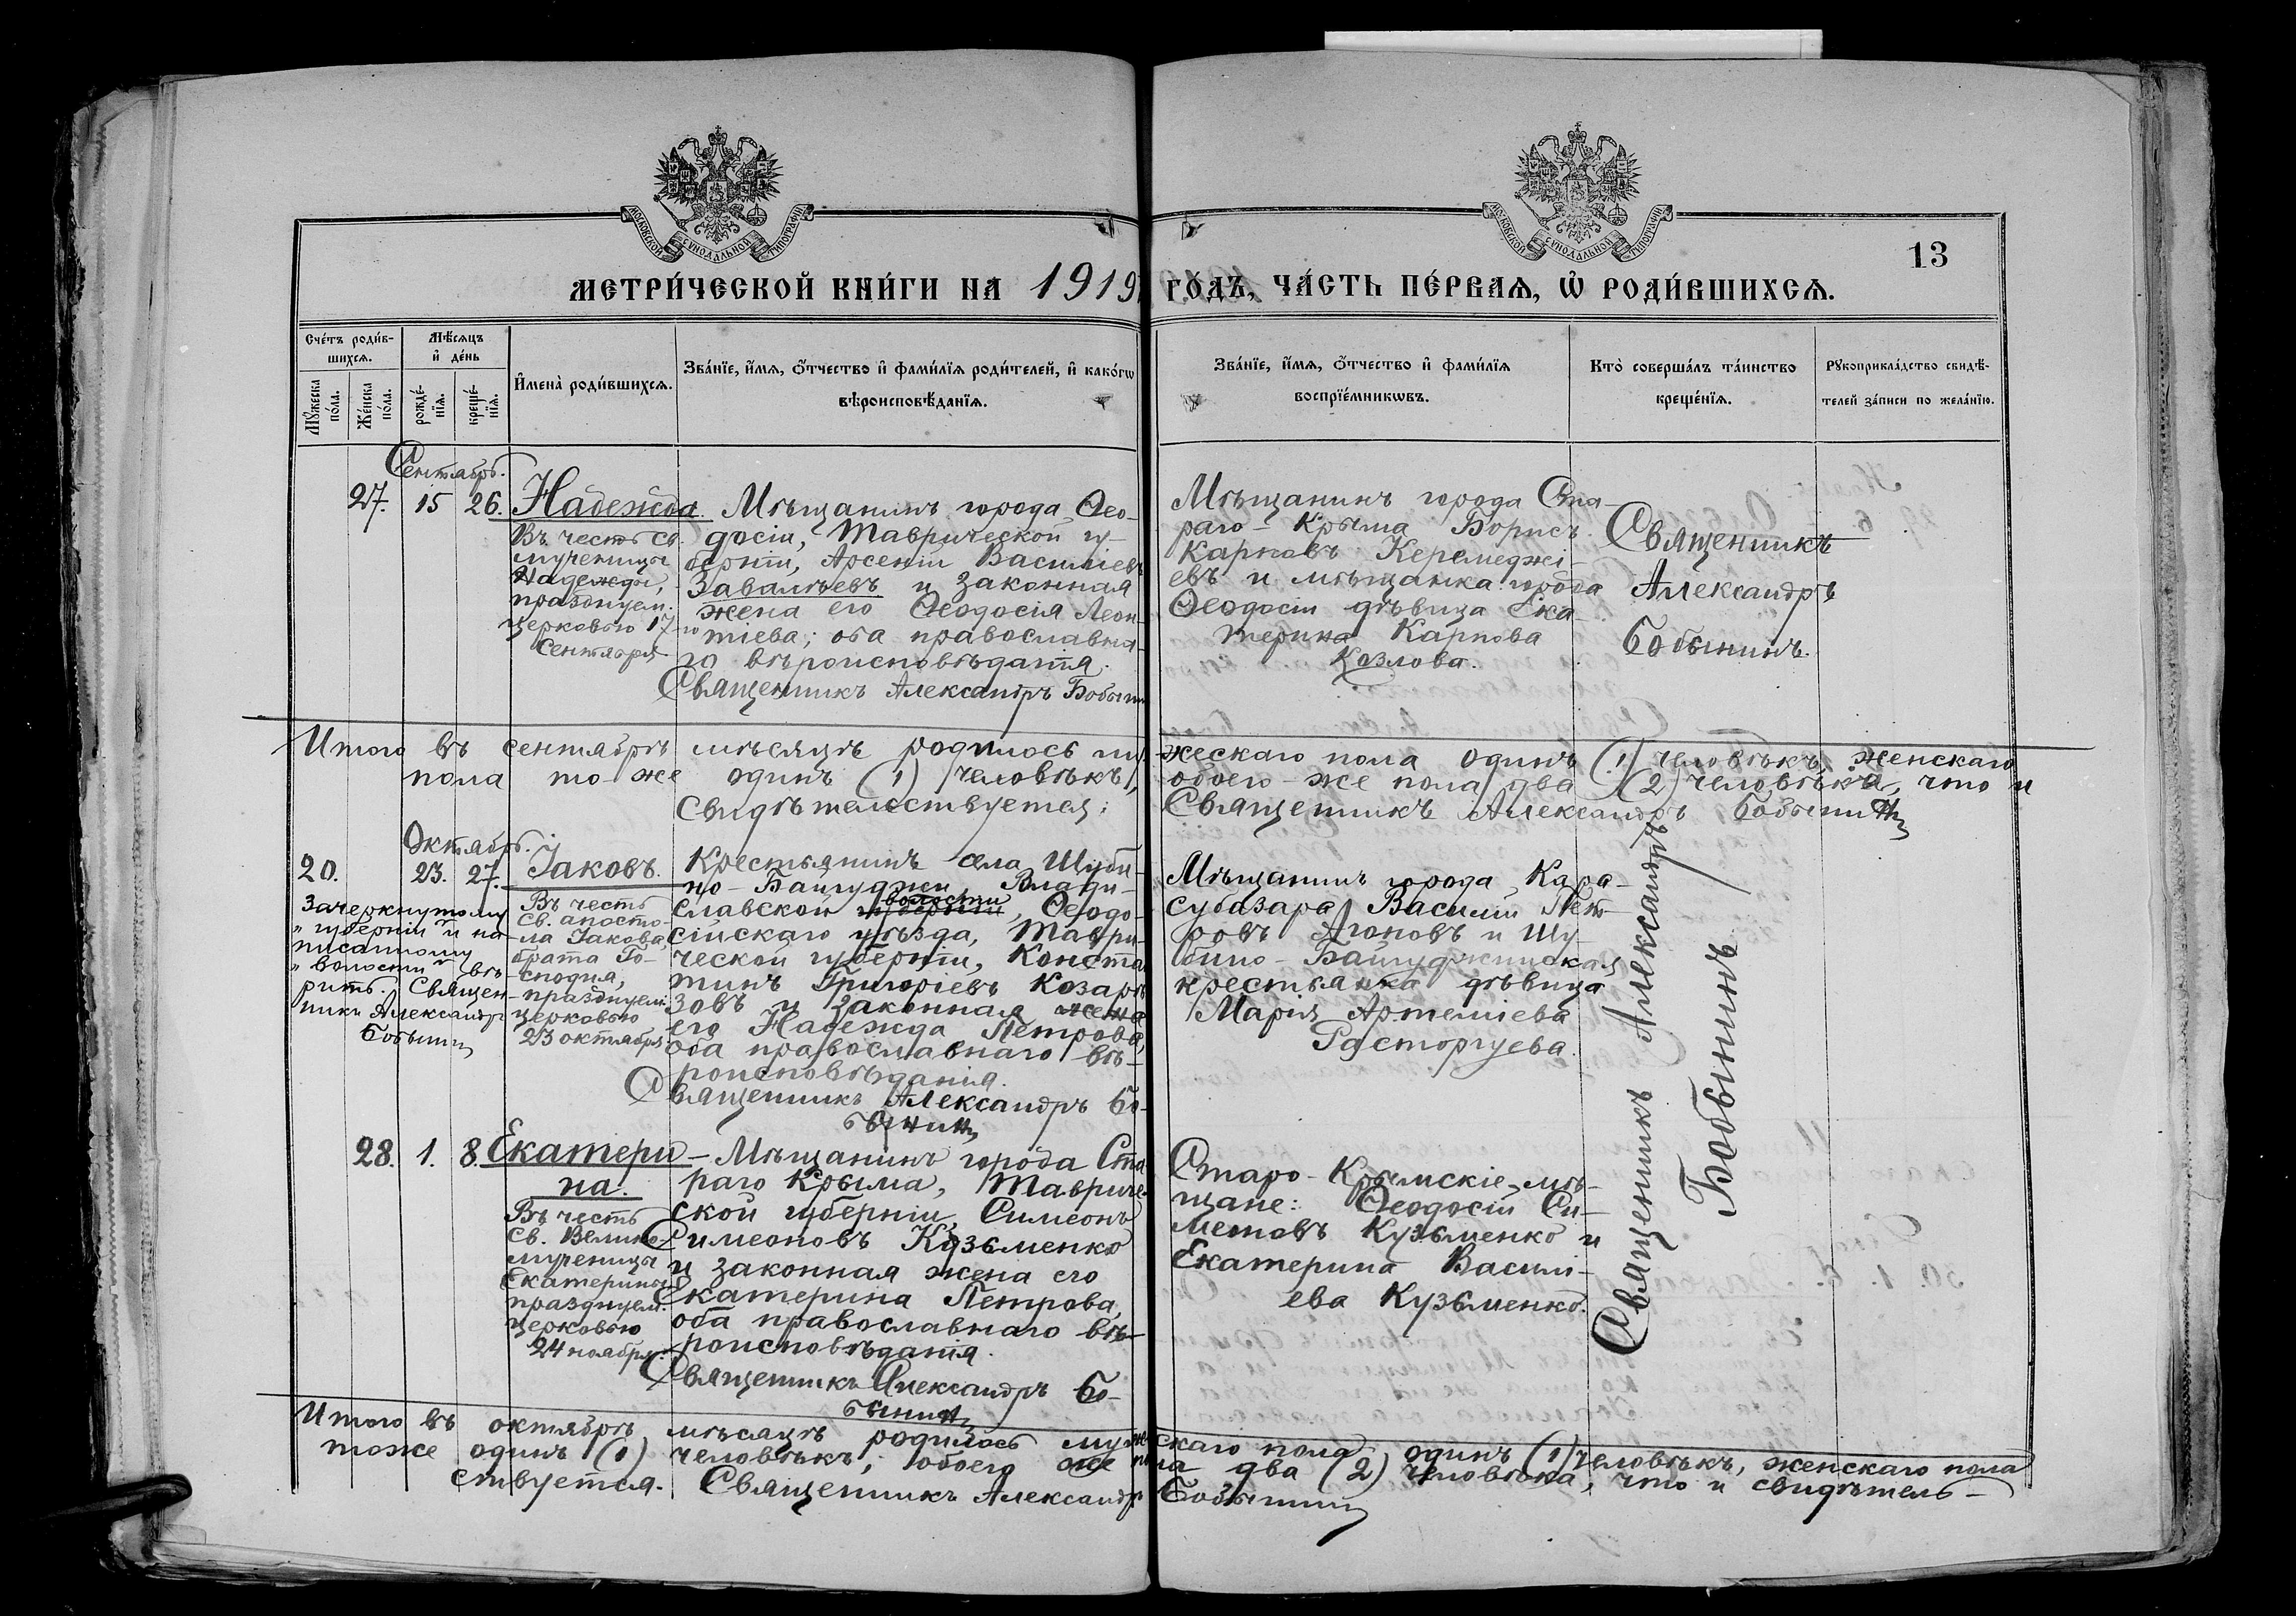 МОСКОВСКОЙ СѴНОДАЛЬНОЙ ТИПОГРАФІИ
МОСКОВСКОЙ СѴНОДАЛЬНОЙ ТИПОГРАФІИ
13
МЕТРИ́ЧЕСКОЙ КНИ́ГИ НА 1919 ГО́ДЪ, ЧА́СТЬ ПЕ́РВАЯ, Ѡ РОДИ́ВШИХСЯ.
Сче́тъ роди́в-
шихся.
Мѣ́сяцъ
и҆ де́нь
Мꙋ́жеска по́ла.
Же́нска по́ла.
рожде́-нїя.
креще́-нїя.
И҆мена̀ роди́вшихся.
Зва́нїе, и҆́мя, ѻ҆́тчество и҆ фами́лїя роди́телей, и҆ како́гѡ
вѣроисповѣ́данїя.
Зва́нїе, и҆́мя, ѻ҆́тчество и҆ фами́лїя
воспрїе́мникѡвъ.
Кто̀ соверша́лъ та́инство
креще́нїя.
Рꙋкоприкла́дство свидѣ́-
телей за́писи по жела́нїю.
Сентябрь.
27. 15 26. Надежда.
Въ честь св.
мученицы
Надежды,
празднуем.
церковью 17-го
Сентября
Мѣщанинъ города Ѳео-
досіи, Таврической гу-
берніи, Арсеній Васильевъ
Завалѣевъ и законная
жена его Ѳеодосія Леон-
тіева; оба православна-
го вѣроисповѣданія.
Священникъ Александръ Бобынин
Мѣщанинъ города Ста-
раго-Крыма Борисъ
Карповъ Керемеджі-
евъ и мѣщанка города
Ѳеодосіи дѣвица Ека-
терина Карпова
Козлова.
Священникъ
Александръ
Бобынинъ.
Итого въ сентябрѣ мѣсяцѣ родилось мужескаго пола одинъ (1) человѣкъ, женскаго
пола то-же одинъ (1) человѣкъ, обоего-же пола два (2) человѣка, что и
свидѣтельствуется: Священникъ Александръ Бобынинъ
Октябрь.
20. 23. 27. Іаковъ.
Зачеркнутому
„губерніи" и на-
писанному
„волости" вѣ-
рить. Священ-
никъ Александр
Бобынин
Въ честь
св. апосто-
ла Іакова,
брата Го-
сподня,
празднуем.
церковью
23 октября
Крестьянинъ села Шуби-
но-Байгуджи, Влади-
славской губерніи волости, Ѳеодо-
сійскаго уѣзда, Таври-
ческой губерніи, Конста
тинъ Григоріевъ Козарѣ
зовъ и законная жена
его Надежда Петрова,
оба православнаго вѣ-
роисповѣданія.
Священникъ Александръ Бо-
бынин
Мѣщанинъ города Кара-
субазара Василій Пет-
ровъ Агоновъ и Шу-
бино-Байгуджинская
крестьянка дѣвица
Марія Артеміева
Расторгуева.
28. 1. 8. Екатери-
на.
Въ честь
св. Велико-
мученицы
Екатерины,
празднуем.
церковью
24 ноября.
Мѣщанинъ города Ста
раго Крыма, Тавриче-
ской губерніи, Симеонъ
Симеоновъ Кузьменко
и законная жена его
Екатерина Петрова,
оба православнаго вѣ-
роисповѣданія.
Священникъ Александръ Бо-
бынин
Старо-Крымскіе мѣ-
щане: Ѳеодосій Си-
меоновъ Кузьменко и
Екатерина Васил-
ева Кузьменко.
Священникъ Александръ
Бобынинъ
Итого въ октябрѣ мѣсяцѣ родилось мужескаго пола одинъ (1) человѣкъ, женскаго пола
тоже одинъ (1) человѣкъ; обоего же пола два (2) человѣка, что и свидѣтель-
ствуется. Священникъ Александр Бобынин